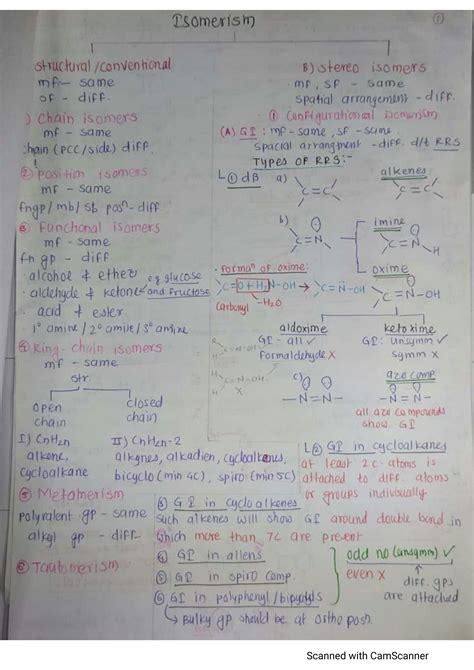 Isomerism
①
structural/conventional
mf - same
sf - diff.
1) Chain isomers
mf - same
chain (PCC/side) diff.
② Position isomers
mf - same
fngp/mb/sb posⁿ - diff
③ Functional isomers
mf - same
fn gp - diff
· alcohol & ether
· aldehyde & ketone
e.g glucose
and fructose
· acid & ester
· 1° amine / 2° amine / 3° amine
④ Ring-chain isomers
mf - same
str.
open
chain
closed
chain
I) CnH2n
alkene,
cycloalkane
II) CnH2n-2
alkynes, alkadien, cycloalkenes,
bicyclo (min 4C), spiro (min 5C)
⑤ Metamerism
polyvalent gp - same
alkyl gp - diff.
⑥ Tautomerism
B) stereo isomers
mf, sf - same
spatial arrangement - diff.
① Configurational Isomerism
(A) GI : mf-same, sf-same
spacial arrangment - diff. d/t RRS
TYPES OF RRS:-
① dB a) C=C
alkenes
C=C
b) C=N
imine
C=N-H
oxime
C=N-OH
· Formaⁿ of oxime:
C=O+H2N-OH → C=N-OH
Carbonyl
-H2O
aldoxime
GI - all ✓
Formaldehyde X
ketoxime
GI: Unsymm ✓
symm X
C=N-OH
C=N-OH
c) -N=N-
azo comp
-N=N-
all azo compounds
show GI
② GI in cycloalkanes
at least 2 C-atoms is
attached to diff. atoms
or groups indivually
③ GI in cycloalkenes
Such alkenes will show GI around double bond in
which more than 7C are present
④ GI in allens
⑤ GI in spiro comp.
⑥ GI in polyphenyl/bipyolyds
odd no (unsymm) ✓
even X
diff. gps
are attached
Bulky gp should be at ortho posn.
Scanned with CamScanner